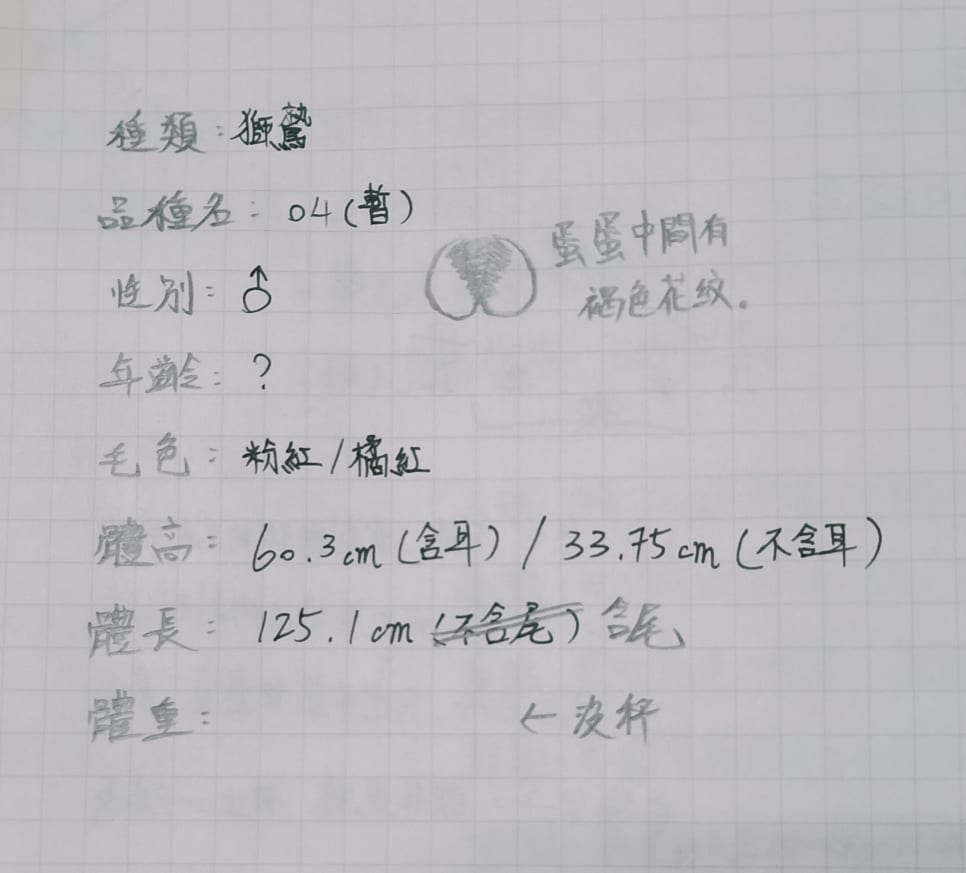 種類：獅鷲
品種名：04(暫)
性別：♂
蛋蛋中間有
褐色花紋。
年齡：?
毛色：粉紅/橘紅
體高：60.3cm(含耳)/33.75cm(不含耳)
體長：125.1cm(不含尾)含尾
體重：←沒秤